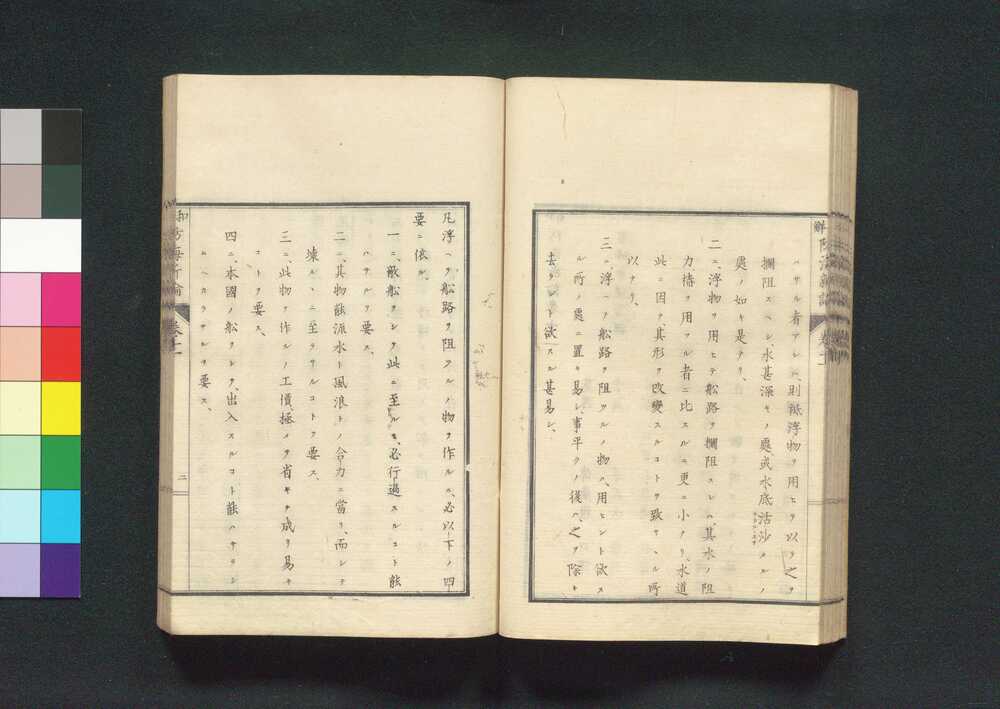 ハサル者アレハ、則祗浮物ヲ用ヒテ以テ之ヲ
攔阻スヘシ、水甚深キノ處、或水底沽沙メルノ
處ノ如キ是ナリ、
二ニ、浮物ヲ用ヒテ舩路ヲ攔阻スレハ、其水ノ阻
力樁ヲ用フル者ニ比スルニ更ニ小ナリ、水道
此ニ因テ、其形ヲ改變スルコトヲ致サヽル所
以ナリ、
三ニ、浮ヘテ舩路ヲ阻ツルノ物ハ、用ヒント欲ス
ル所ノ處ニ置キ易シ、事平クノ後ハ、之ヲ除キ
去ラント欲スル甚易シ、
凡浮ヘテ舩路ヲ阻ツルノ物ヲ作ルニ、必以下ノ四
要ニ依ル、
一ニ、敵舩ヲシテ此ニ至ルモ、必行過スルコト能
ハサルヲ要ス、
二ニ、其物能派水ト風浪トノ合力ニ當リ、而シテ
壊ルヽニ至ラサルコトヲ要ス、
三ニ、此物ヲ作ルノ工價、極メテ省キテ成リ易キ
コトヲ要ス、
四ニ、本國ノ舩ヲシテ、出入スルコト能ハサラシ
ムヘカラサルヲ要ス、
卷十一
二